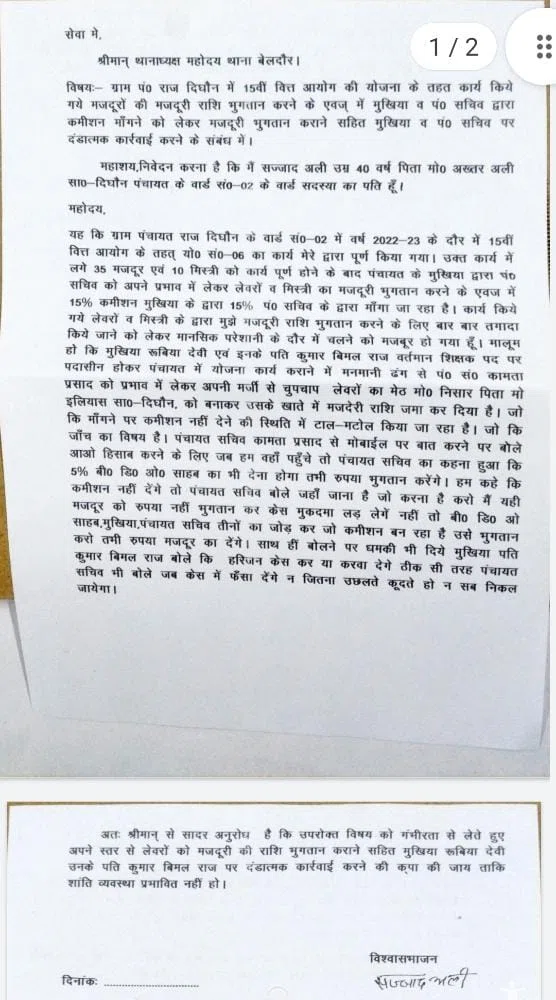 1 / 2
सेवा मे,
श्रीमान् थानाध्यक्ष महोदय थाना बेलदौर।
विषयः– ग्राम पं0 राज दिघौन में 15वीं वित्त आयोग की योजना के तहत कार्य किये
गये मजदूरों की मजदूरी राशि भुगतान करने के एवज् में मुखिया व पं0 सचिव द्वारा
कमीशन माँगने को लेकर मजदूरी भुगतान कराने सहित मुखिया व पं0 सचिव पर
दंडात्मक कार्रवाई करने के संबंध में।
महाशय,निवेदन करना है कि मैं सज्जाद अली उम्र 40 वर्ष पिता मो0 अख्तर अली
सा0–दिघौन पंचायत के वार्ड सं0–02 के वार्ड सदस्या का पति हूँ।
महोदय,
यह कि ग्राम पंचायत राज दिघौन के वार्ड सं0–02 में वर्ष 2022–23 के दौर में 15वीं
वित्त आयोग के तहत् यो0 सं0–06 का कार्य मेरे द्वारा पूर्ण किया गया। उक्त कार्य में
लगे 35 मजदूर एवं 10 मिस्त्री को कार्य पूर्ण होने के बाद पंचायत के मुखिया द्वारा पं0
सचिव को अपने प्रभाव में लेकर लेवरों व मिस्त्री का मजदूरी भुगतान करने के एवज में
15% कमीशन मुखिया के द्वारा 15% पं0 सचिव के द्वारा माँगा जा रहा है। कार्य किये
गये लेवरों व मिस्त्री के द्वारा मुझे मजदूरी राशि भुगतान करने के लिए बार बार तगादा
किये जाने को लेकर मानसिक परेशानी के दौर में चलने को मजबूर हो गया हूँ। मालूम
हो कि मुखिया रूबिया देवी एवं इनके पति कुमार बिमल राज वर्तमान शिक्षक पद पर
पदासीन होकर पंचायत में योजना कार्य कराने में मनमानी ढंग से पं0 सं0 कामता
प्रसाद को प्रभाव में लेकर अपनी मर्जी से चुपचाप लेवरों का मेठ मो0 निसार पिता मो
इलियास सा0–दिघौन, को बनाकर उसके खाते में मजदेरी राशि जमा कर दिया है। जो
कि माँगने पर कमीशन नहीं देने की स्थिति में टाल–मटोल किया जा रहा है। जो कि
जाँच का विषय है। पंचायत सचिव कामता प्रसाद से मोबाईल पर बात करने पर बोले
आओ हिसाब करने के लिए जब हम वहाँ पहुँचे तो पंचायत सचिव का कहना हुआ कि
5% बी0 डि0 ओ0 साहब का भी देना होगा तभी रुपया भुगतान करेंगे। हम कहे कि
कमीशन नहीं देंगे तो पंचायत सचिव बोले जहाँ जाना है जो करना है करो मैं यही
मजदूर को रुपया नहीं भुगतान कर केस मुकदमा लड़ लेगें नहीं तो बी0 डि0 ओ
साहब,मुखिया,पंचायत सचिव तीनों का जोड़ कर जो कमीशन बन रहा है उसे भुगतान
करो तभी रुपया मजदूर का देंगे। साथ हीं बोलने पर धमकी भी दिये मुखिया पति
कुमार बिमल राज बोले कि हरिजन केस कर या करवा देगे ठीक सी तरह पंचायत
सचिव भी बोले जब केस में फँसा देंगे न जितना उछलते कूदते हो न सब निकल
जायेगा।
अतः श्रीमान् से सादर अनुरोध है कि उपरोक्त विषय को गंभीरता से लेते हुए
अपने स्तर से लेवरों को मजदूरी की राशि भुगतान कराने सहित मुखिया रूबिया देवी
उनके पति कुमार बिमल राज पर दंडात्मक कार्रवाई करने की कृपा की जाय ताकि
शांति व्यवस्था प्रभावित नहीं हो।
विश्वासभाजन
दिनांकः ........................ सज्जाद अली